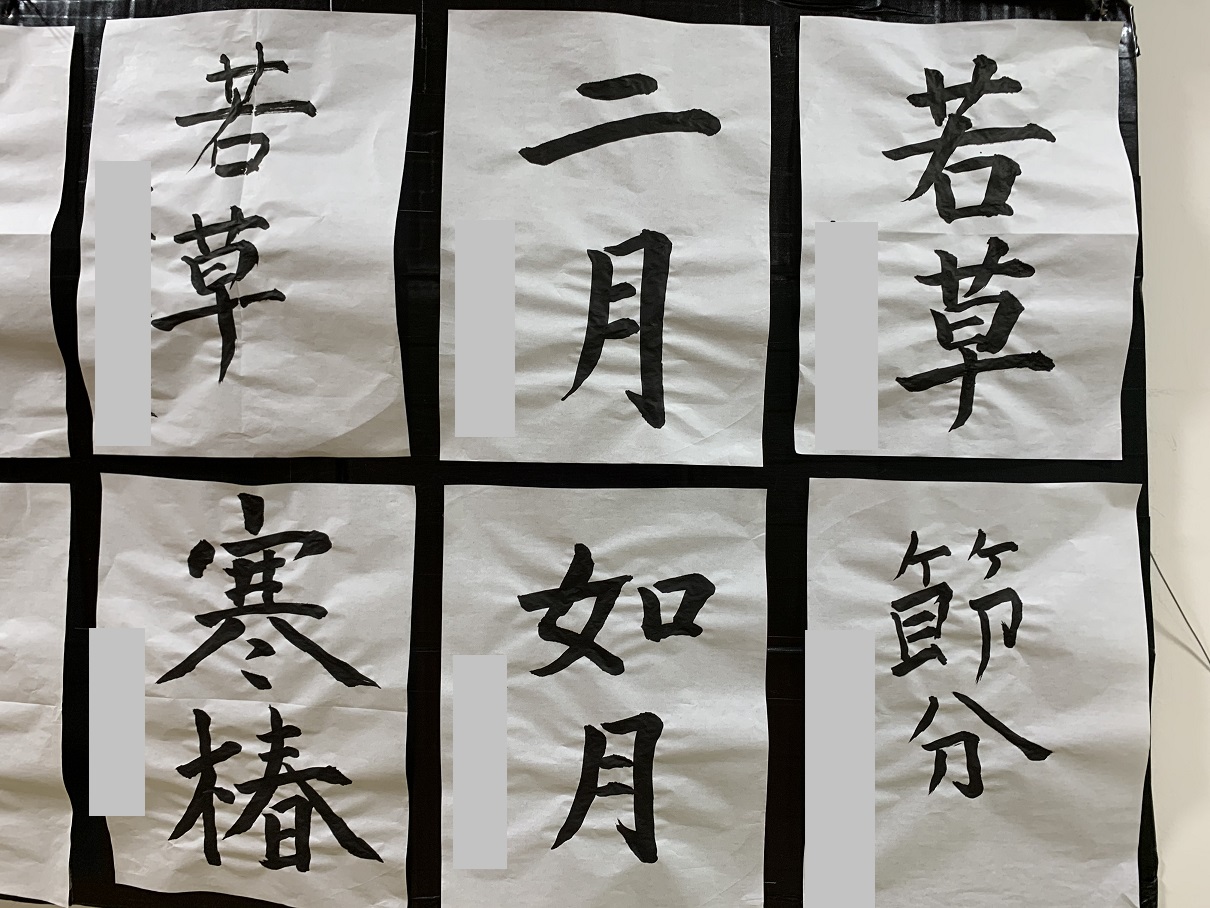 若草
二月
若草
寒椿
如月
節分